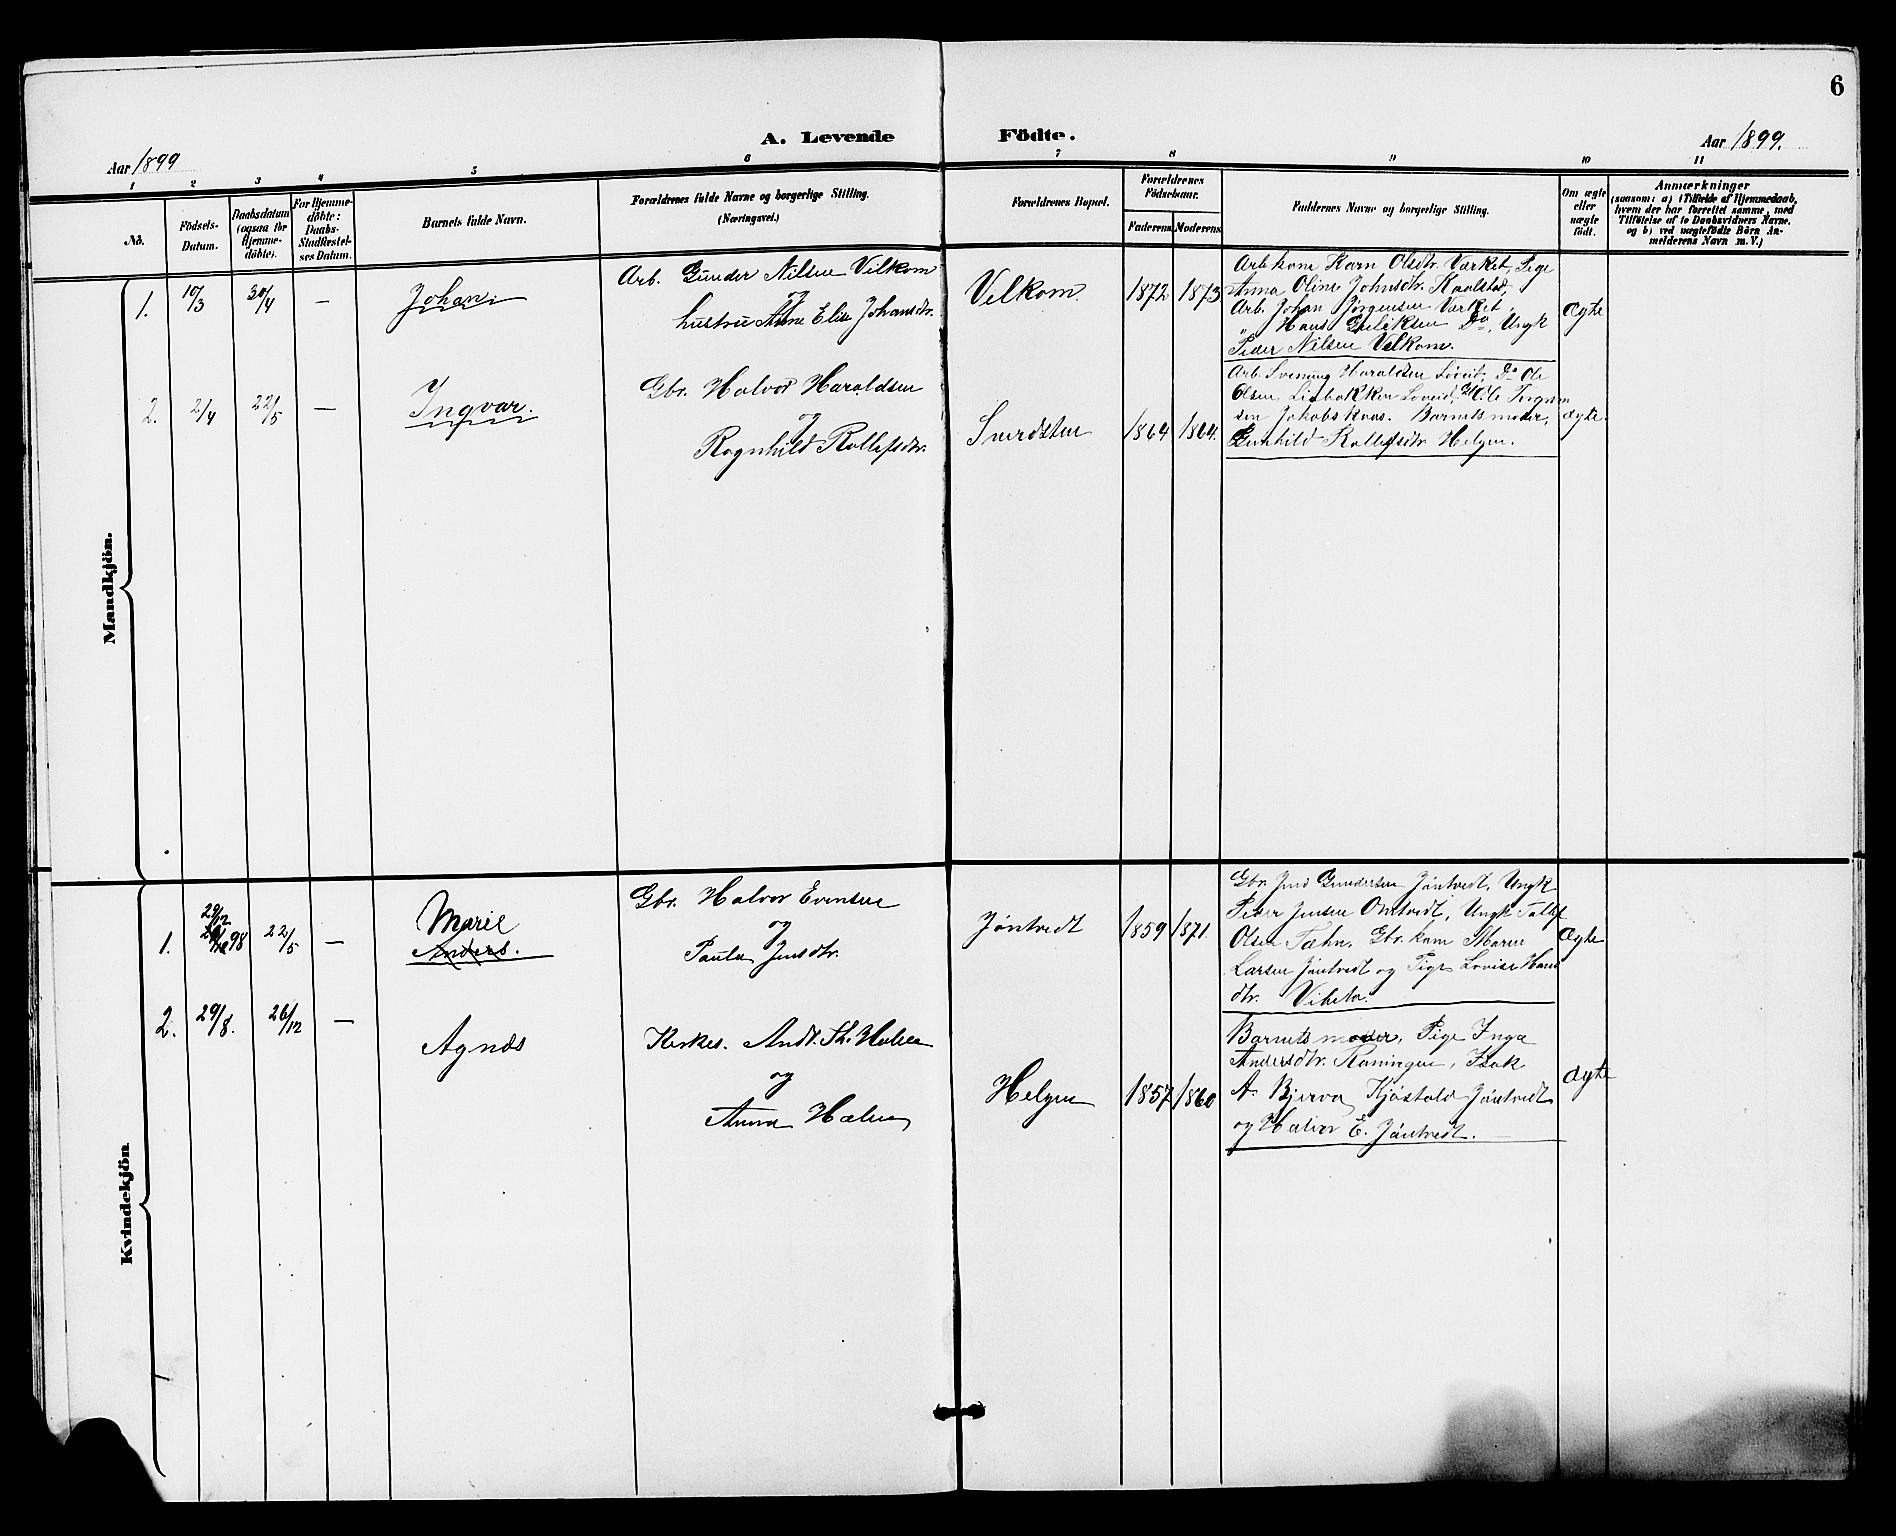 6
A. Levende Födte.
Aar 1899
Aar 1899.
1 2 3 4 5 6 7 8 9 10 11
No.
Födsels-Datum.
Daabsdatum (ogsaa for Hjemme-döbte).
For Hjemme-döbte: Daabs-Stadfæstel-ses Datum.
Barnets fulde Navn.
Forældrenes fulde Navne og borgerlige Stilling.
(Næringsvei.)
Forældrenes Bopæl.
Forældrenes Födselsaar.
Faderens Moderens
Faddernes Navne og borgerlige Stilling.
Om ægte eller uægte födt.
Anmærkninger
(saasom: a) i Tilfælde af Hjemmedaab,
hvem der har forrettet samme, med
Tilföielse af to Daabsvidners Navne.
og b) ved uægtefödte Börn An-
melderens Navn m. V.)
Mandkjön.
1. 10/3 30/4 — Johan
Arb. Gunder Nilsen Velkom
og
hustru Anne Elise Johansdtr.
Velkom 1872 1873
Arb.kone Karn Olsdtr. Værket, Pige
Anna Oline Johnsdtr. Kaalstad,
Arb. Johan Jørgensen Værket,
" Hans Do, Ungk
Peder Nilsen Velkom.
Ægte
2. 2/4 22/5 — Ingvar.
Gbr. Halvor Haraldsen
og
Ragnhild Rollefsdtr.
1864 1864.
Arb. Svenung Haraldsen Løveid, Do Ole
Olsen Løveid, Ole
Jakobskaas. Barnets moder,
Gunhild Rollefsdtr Helgen.
Ægte.
Kvindekjön
1. 29/12 98 22/5 — Marie
Anders.
Gbr. Halvor Evensen
og
Paula Jensdtr.
Jøntvedt 1859 1871.
Gbr. Jens Gundersen Jøntvedt, Ungk
Peder Jensen Omtvedt, Ungk Tollef
Olsen Tæhn, Gbr. kone Maren
Larsen Jøntvedt og Pige Lovise Hans
dtr.
Ægte
2. 29/8. 26/12 — Agnes
Kirkes. Andr. Th. Hælen
og
Anna Hælen
Helgen 1857 1860
Barnets moder, Pige Inga
Andersdtr. Røningen, Isak
A. Bjerva, Kjøstold Jøntvedt
og Halvor E. Jøntvedt.
Ægte